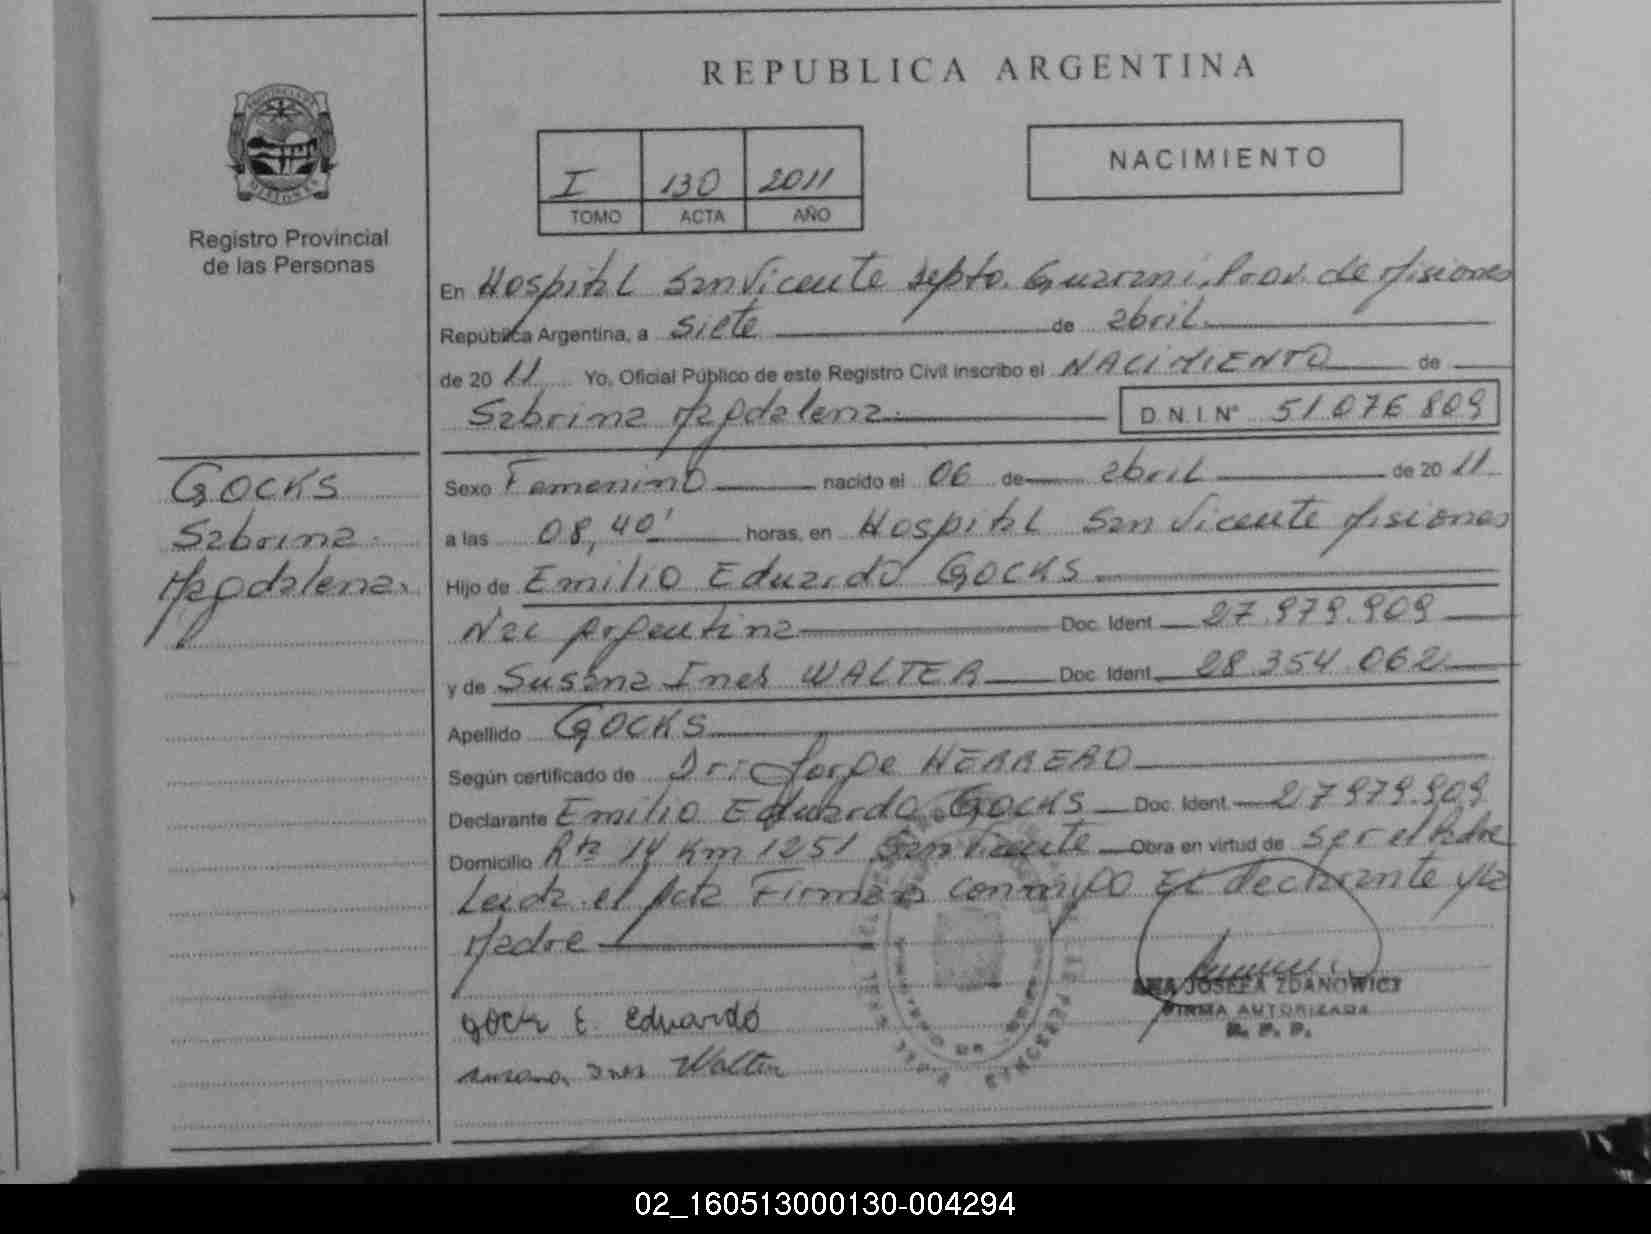 REPUBLICA ARGENTINA
PROVINCIA DE
MISIONES
Registro Provincial
de las Personas
I 130 2011
TOMO ACTA AÑO
NACIMIENTO
En Hospital San Vicente Depto. Guarani, Prov. de Misiones
República Argentina, a siete de abril
de 20 11 Yo, Oficial Público de este Registro Civil inscribo el NACIMIENTO de
Sabrina Magdalena. D.N.I. N° 51.076 809
GOCKS
Sabrina
Magdalena.
Sexo Femenino nacido el 06 de abril de 20 11
a las 08,40' horas, en Hospital San Vicente Misiones
Hijo de Emilio Eduardo GOCKS
Nac Argentina Doc. Ident. 27.979.909
y de Susana Ines WALTER Doc. Ident. 28.354.062
Apellido GOCKS
Según certificado de Dr: Jorge HERRERO
Declarante Emilio Eduardo GOCKS Doc. Ident. 27979.909
Domicilio Rta 14 Km 1251 San Vicente Obra en virtud de ser el Padre
Leida el Acta Firman conmigo El declarante y la
Madre
ANA JOSEFA ZDANOWICZ
FIRMA AUTORIZADA
R. P. P.
gock E. Eduardo
susana Ines Walter
02_160513000130-004294